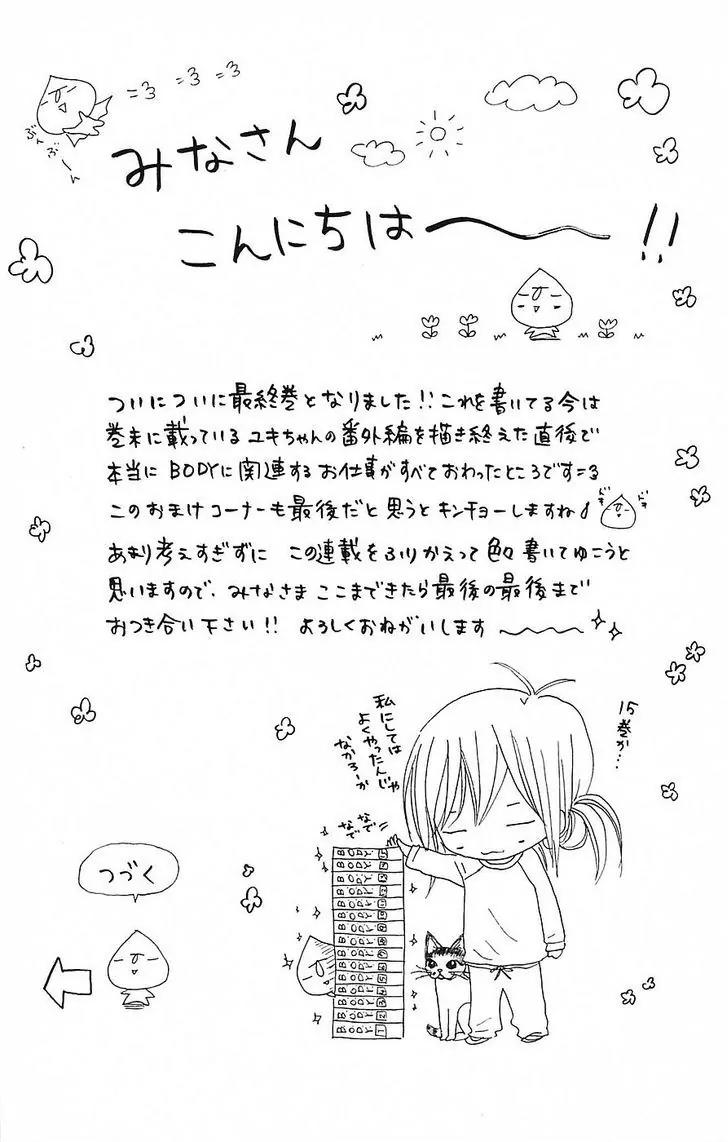 =3 =3 =3
ぶぃぶーん
みなさん
こんにちは〜!!
ついについに最終巻となりました!!これを書いてる今は
巻末に載っているユキちゃんの番外編を描き終えた直後で
本当にBODYに関連するお仕事がすべておわったところです=3
このおまけコーナーも最後だと思うとキンチョーしますね♪
ドキ ドキ
あまり考えすぎずに この連載をふりかえって色々書いてゆこうと
思いますので、みなさまここまできたら最後の最後まで
おつき合い下さい!! よろしくおねがいします〜
15巻か…
私にしては
よくやったんじゃ
なかろーか
なで
なで
BODY 15
BODY 14
BODY 13
BODY 12
BODY 11
BODY 10
BODY 9
BODY 8
BODY 7
BODY 6
BODY 5
BODY 4
BODY 3
BODY 2
BODY 1
つづく